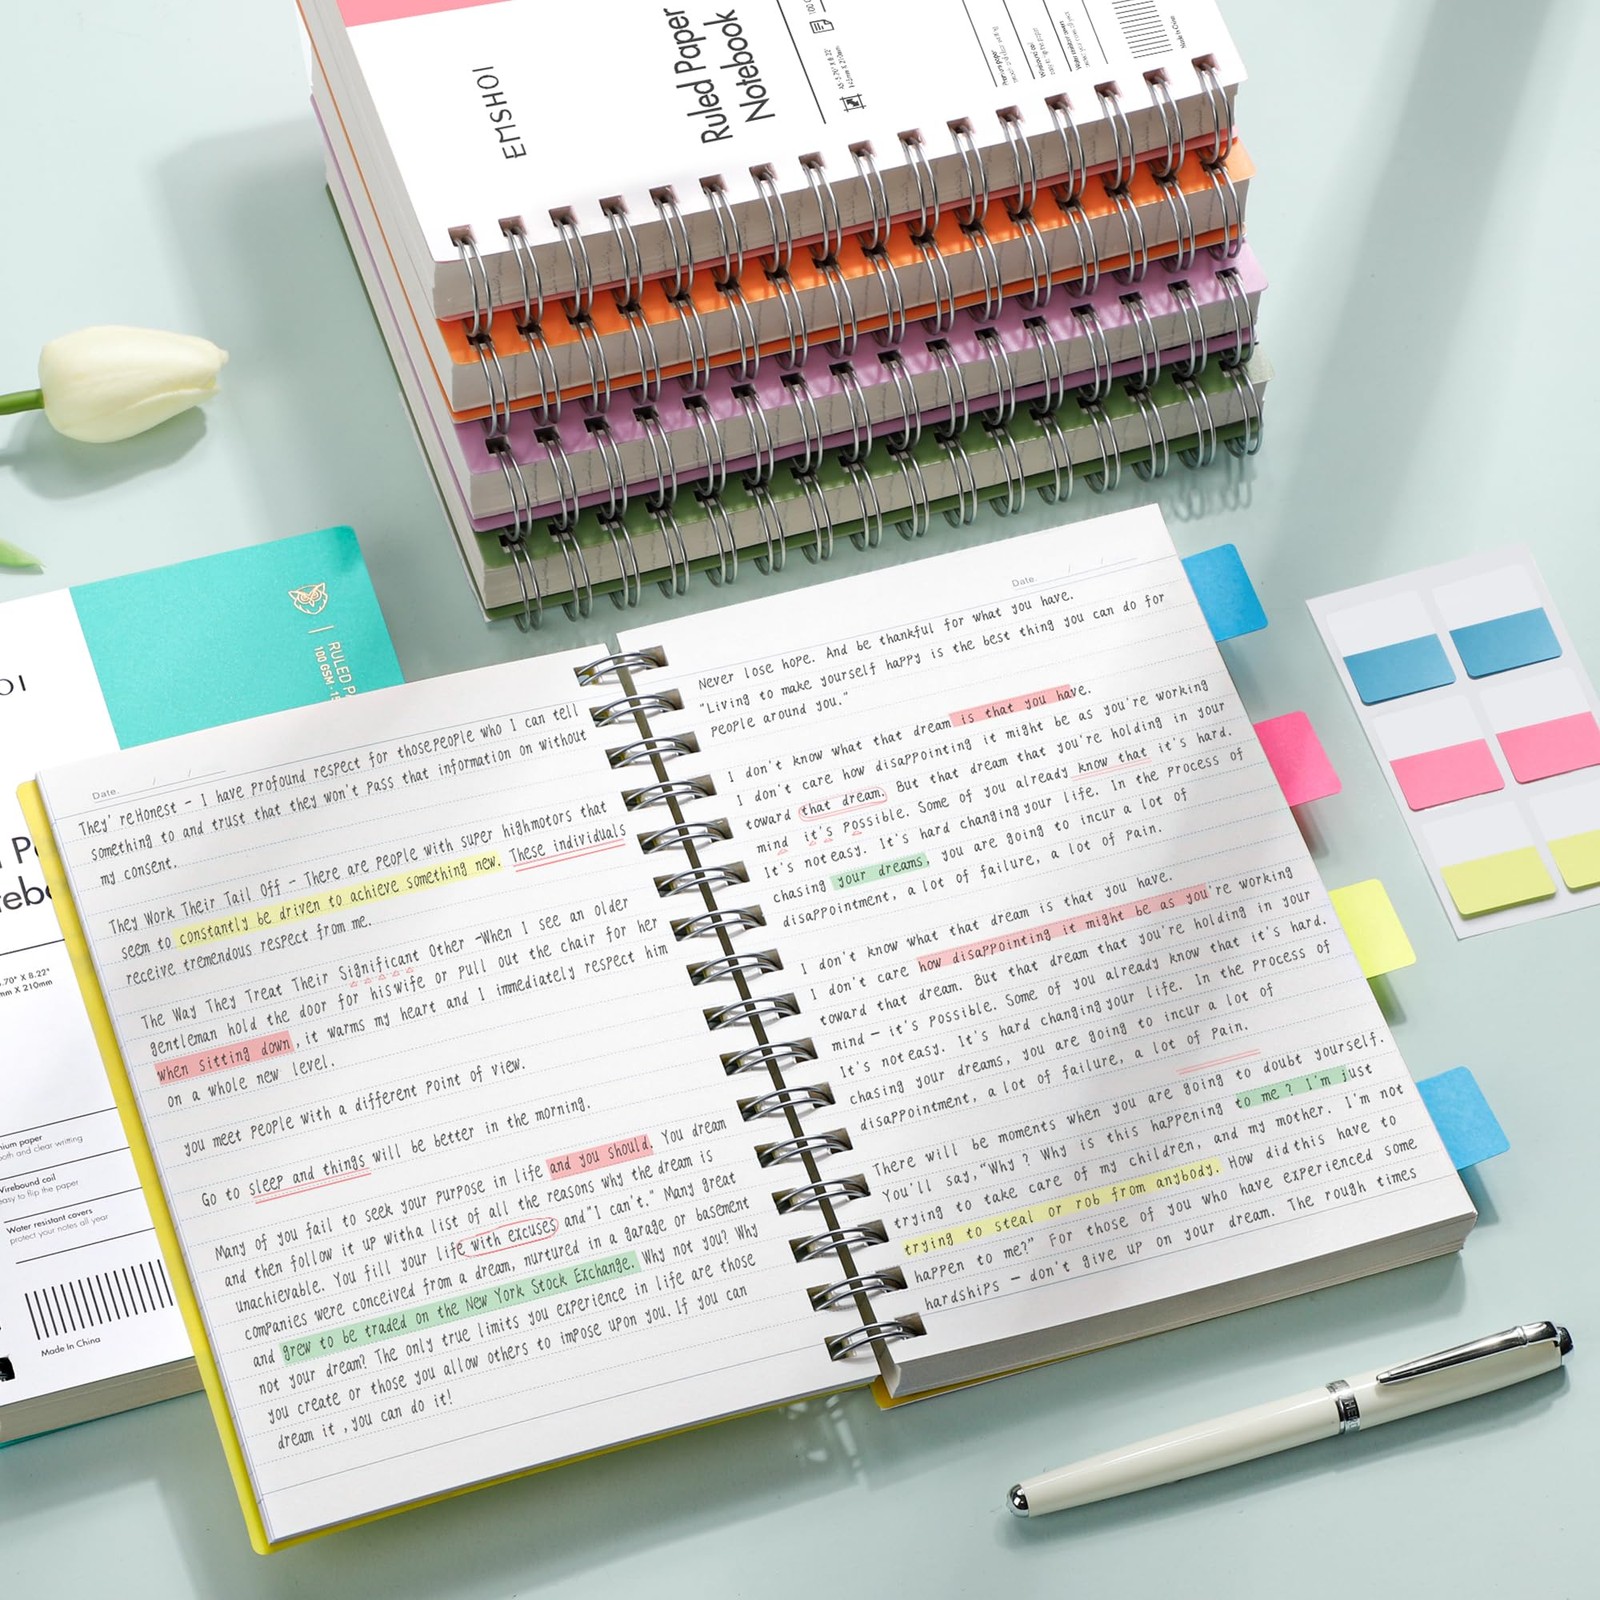 EMSHOI
Ruled Paper
Notebook
A5-5.70" X 8.22"
145mm X 210mm
Made In China
RULED P
100 GSM · 15
OI
.70" X 8.22"
mm X 210mm
nium paper
ooth and clear writting
Wirebound coil
easy to flip the paper
Water resistant covers
protect your notes all year
Made In China
Date. / /
They' reHonest – I have profound respect for thosepeople who I can tell
something to and trust that they won't pass that information on without
my consent.
They Work Their Tail Off – There are people with super highmotors that
seem to constantly be driven to achieve something new. These individuals
receive tremendous respect from me.
The Way They Treat Their Significant Other –When I see an older
gentleman hold the door for hiswife or pull out the chair for her
when sitting down, it warms my heart and I immediately respect him
on a whole new level.
you meet people with a different point of view.
Go to sleep and things will be better in the morning.
Many of you fail to seek your purpose in life and you should. You dream
and then follow it up witha list of all the reasons why the dream is
unachievable. You fill your life with excuses and"I can't." Many great
companies were conceived from a dream, nurtured in a garage or basement
and grew to be traded on the New York Stock Exchange. Why not you? Why
not your dream? The only true limits you experience in life are those
you create or those you allow others to impose upon you.If you can
dream it ,you can do it!
Date. / /
Never lose hope. And be thankful for what you have.
"Living to make yourself happy is the best thing you can do for
people around you."
I don't know what that dream is that you have.
I don't care how disappointing it might be as you're working
toward that dream. But that dream that you're holding in your
mind it's possible. Some of you already know that it's hard.
It's noteasy. It's hard changingyour life. In the process of
chasing your dreams, you are going to incur a lot of
disappointment, a lot of failure, a lot of pain.
I don't know what that dream is that you have.
I don't care how disappointing it might be as you're working
toward that dream. But that dream that you're holding in your
mind – it's possible. Some of you already know that it's hard.
It's noteasy. It's hard changingyour life. In the process of
chasing your dreams, you are going to incur a lot of
disappointment, a lot of failure, a lot of pain.
There will be moments when you are going to doubt yourself.
You'll say, "Why ? Why is this happening to me ? I'm just
trying to take care of my children, and my mother. I'm not
trying to steal or rob from anybody. How didthis have to
happen to me?" For those of you who have experienced some
hardships – don't give up on your dream. The rough times